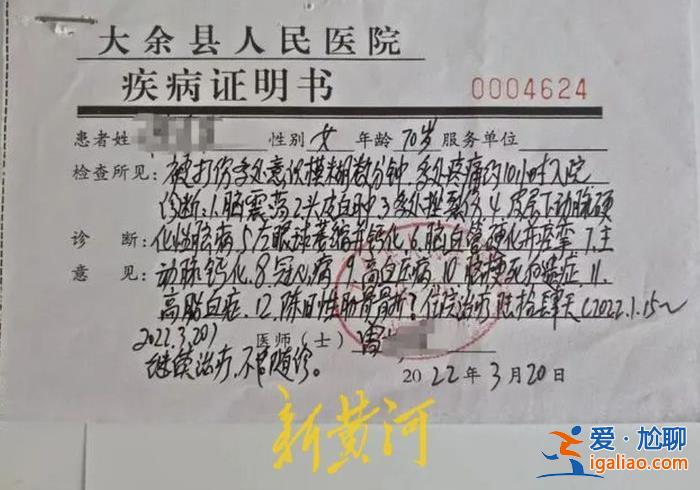 大余县人民医院
疾病证明书 0004624
患者姓 性别 女 年龄 70岁 服务单位
检查所见：被打伤多处意识模糊数分钟、多处疼痛约10小时入院
诊断：1.脑震荡 2.头皮血肿 3.多处挫裂伤 4.皮层下动脉硬
诊 断：化性脑病 5.左眼球萎缩并钙化 6.脑血管硬化并痉挛 7.主
意 见：动脉钙化 8.冠心病 9.高血压病 10.脑梗死后遗症 11.
高脂血症 12.陈旧性肋骨骨折？住院治疗陆拾肆天（2022.1.15～
2022.3.20） 医师（士）
继续治疗，不适随诊。
2022年3月20日
新黄河
爱·尬聊
igaliao.com